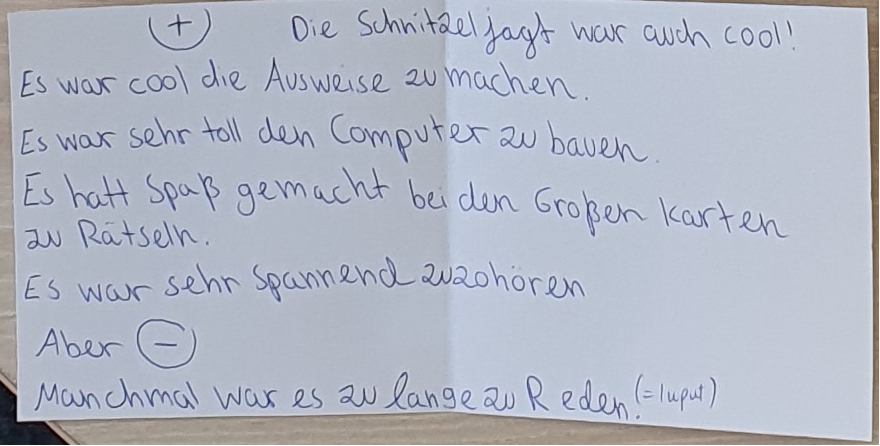 (+) Die Schnitzeljagt war auch cool!
Es war cool die Ausweise zu machen.
Es war sehr toll den Computer zu bauen.
Es hatt Spaß gemacht bei den Großen Karten
zu Rätseln.
Es war sehr spannend zuzohören
Aber (-)
Manchmal war es zu lange zu Reden! (= Input)